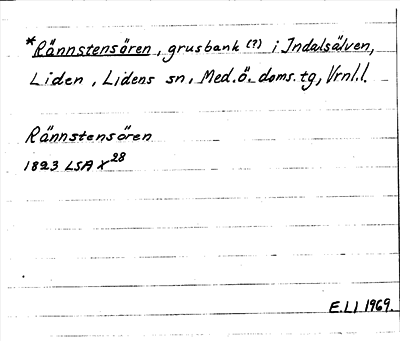 *Rännstensören, grusbank (?) i Indalsälven,
Liden, Lidens sn, Med.ö. doms. tg, Vrnl.l.
Rännstensören
1823 LSA X 28
E.LI 1969.